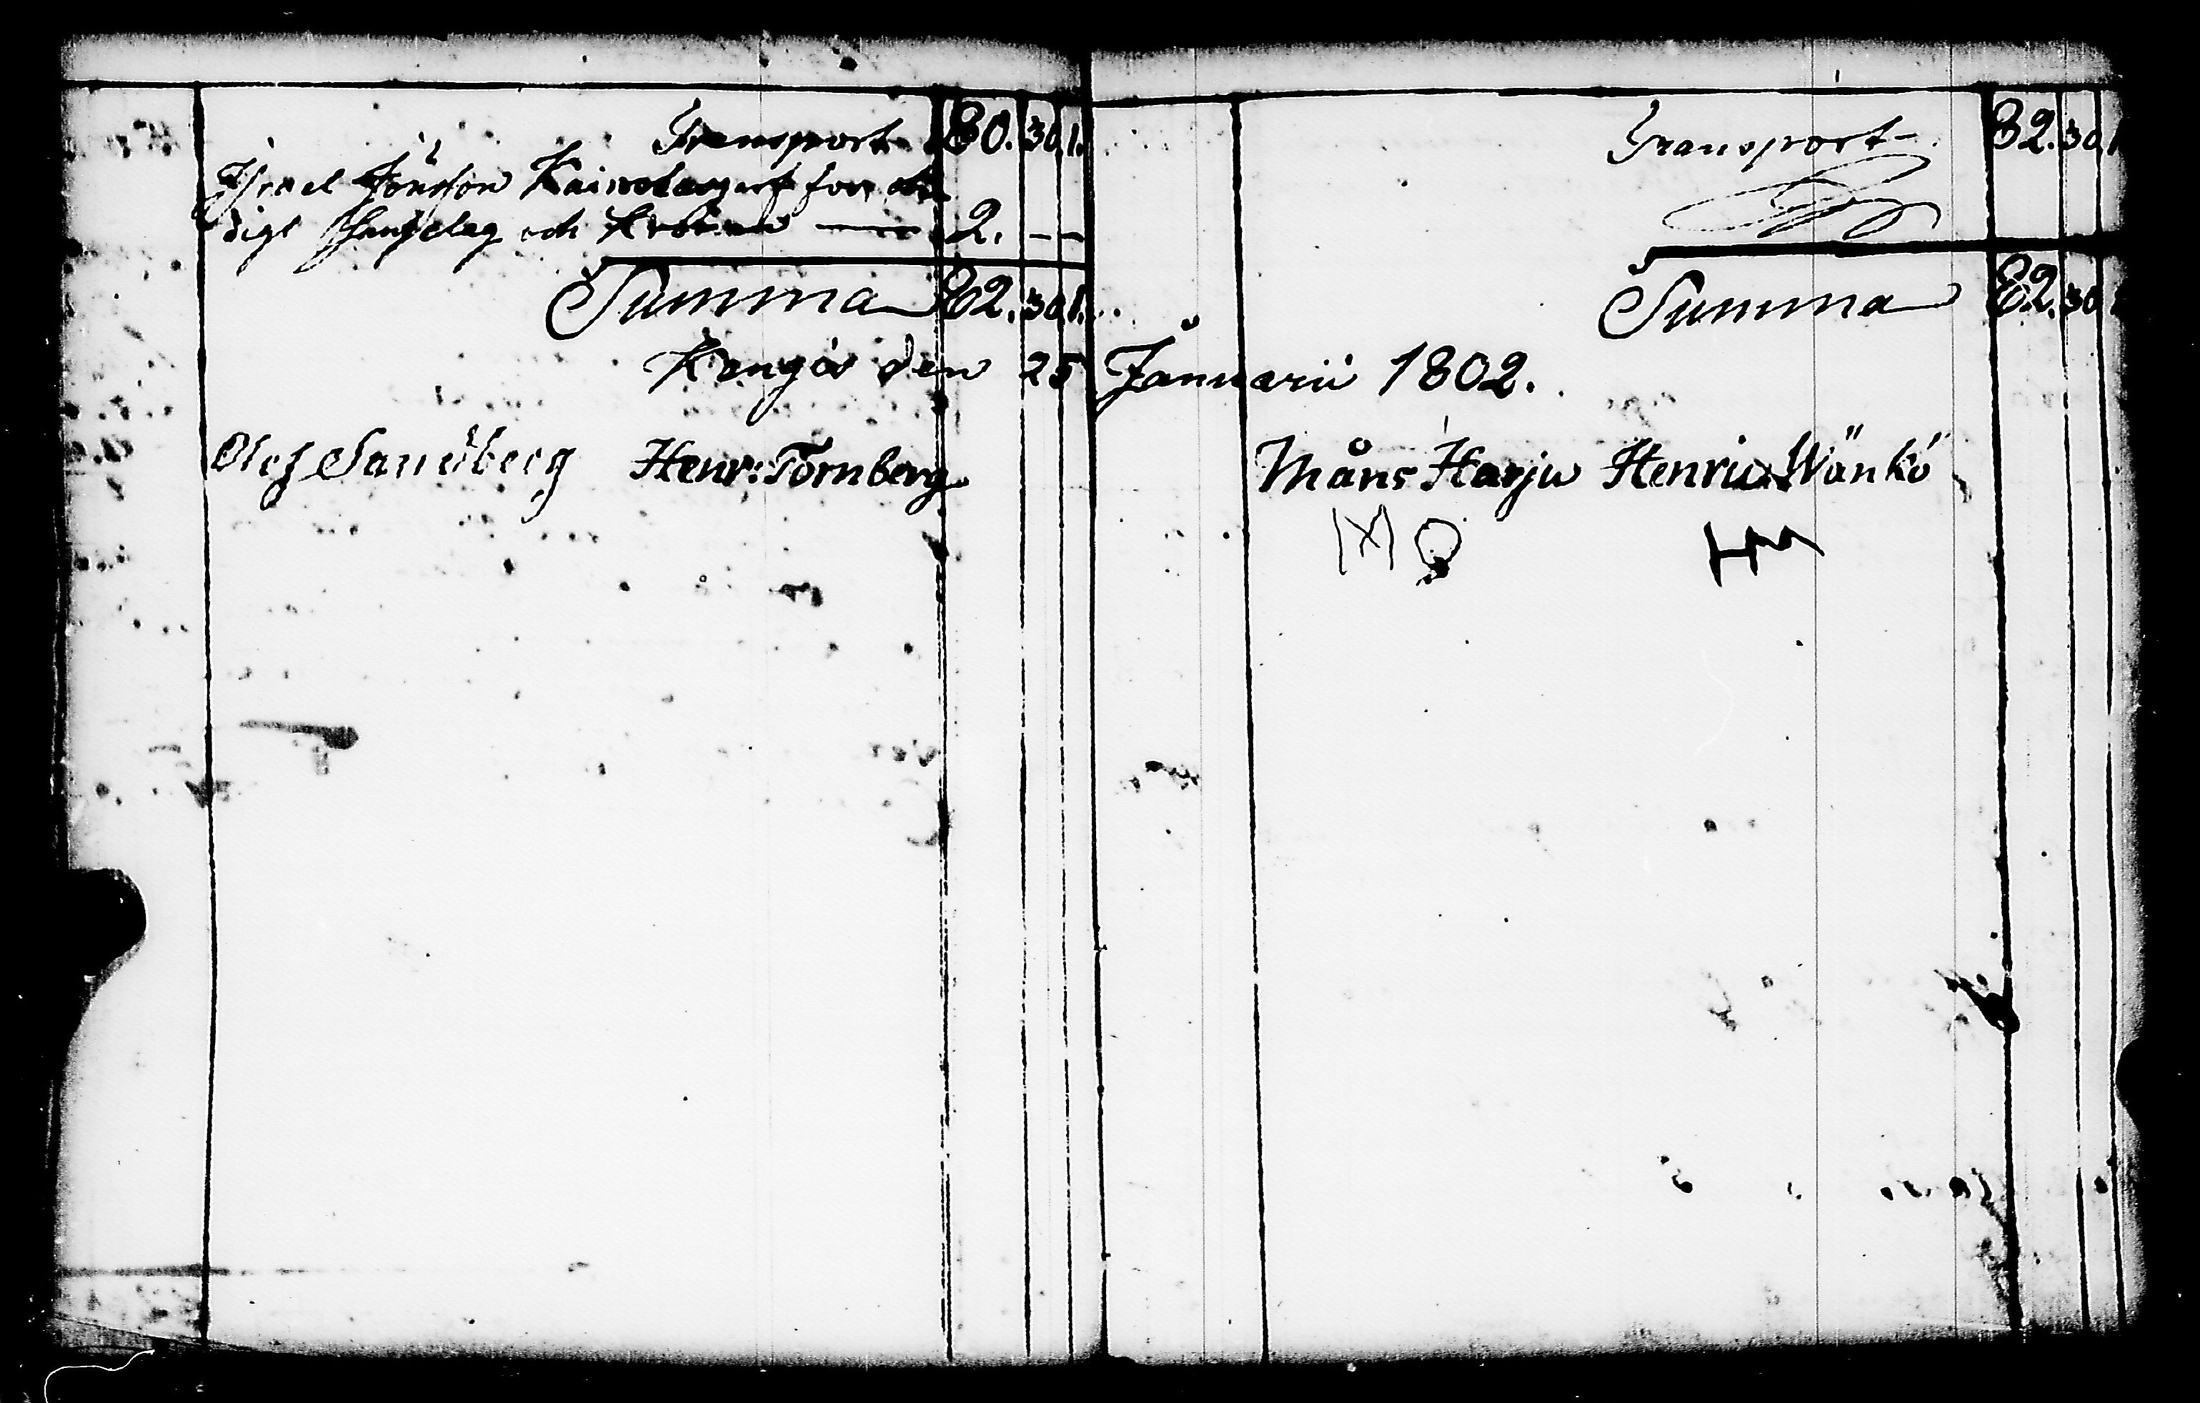 Transport 80. 30. 1.
Israel Jönsson för
digt och 2. — —
Summa 82. 30. 1.
Kengis den 25
Olof Sandberg Henr: Törnberg
Transport 82. 30. 1
Summa 82. 30 1
Januarii 1802.
Måns Harju Henric Wänkö
M
H M